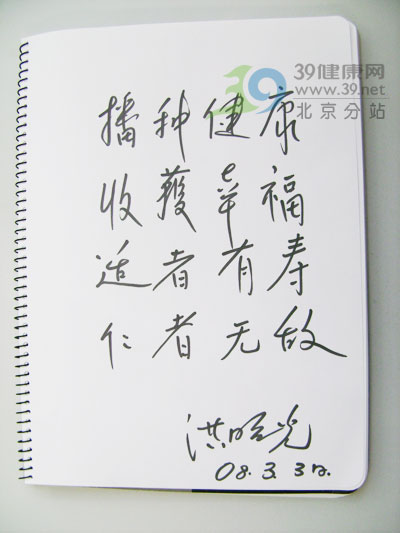 39健康网
www.39.net
北京分站
播种健康
收获幸福
适者有寿
仁者无敌
洪昭光
08.3.3日.